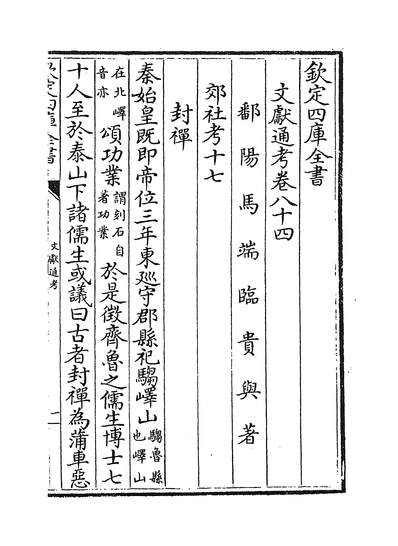 欽定四庫全書
文獻通考卷八十四
鄱陽馬端臨貴與著
郊社考十七
封禪
秦始皇既即帝位三年東廵守郡縣祀騶嶧山騶魯縣也嶧山
在北嶧音亦頌功業謂刻石自著功業於是徴齊魯之儒生博士七
十人至於泰山下諸儒生或議曰古者封禪為蒲車惡
欽定四庫全書
文獻通考
一